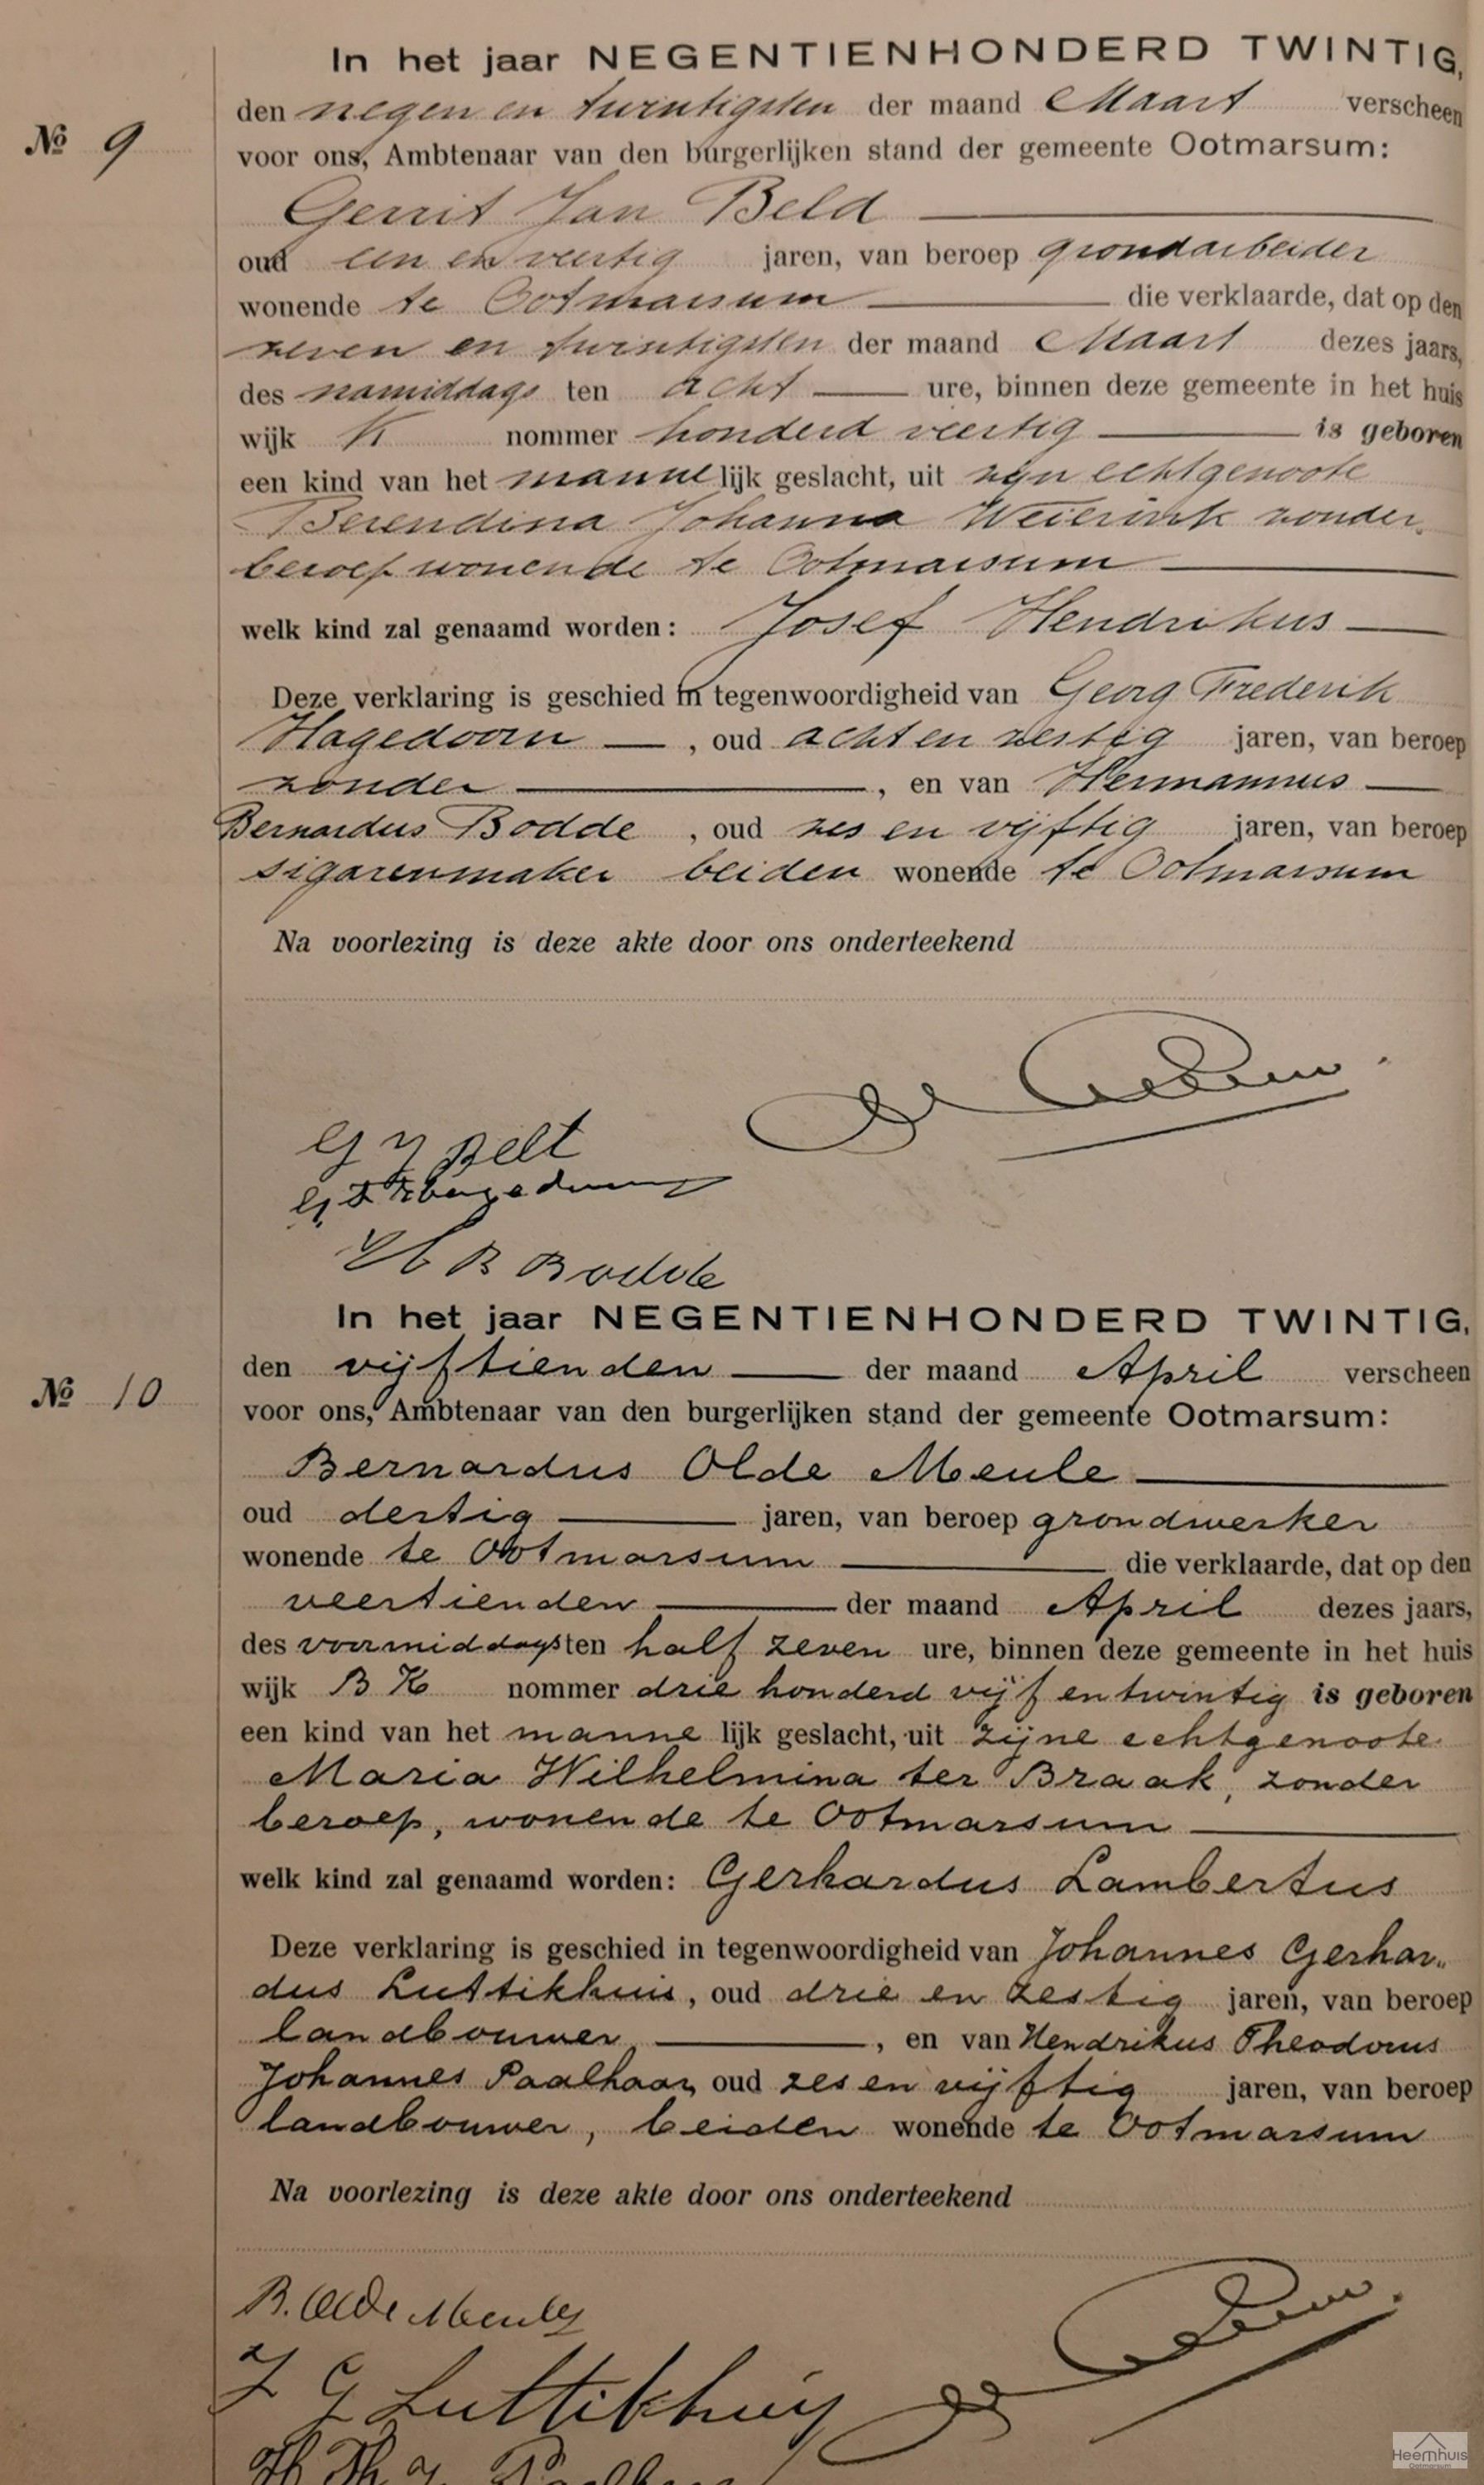 In het jaar NEGENTIENHONDERD TWINTIG,
den negen en twintigsten der maand Maart verscheen
No 9
voor ons, Ambtenaar van den burgerlijken stand der gemeente Ootmarsum:
Gerrit Jan Beld
oud een en veertig jaren, van beroep grondarbeider
wonende te Ootmarsum die verklaarde, dat op den
zeven en twintigsten der maand Maart dezes jaars,
des namiddags ten acht ure, binnen deze gemeente in het huis
wijk K nommer honderd veertig is geboren
een kind van het mannelijk geslacht, uit zijn echtgenoote
Berendina Johanna Weierink zonder
beroep wonende te Ootmarsum
welk kind zal genaamd worden: Josef Hendrikus
Deze verklaring is geschied in tegenwoordigheid van Georg Frederik
Hagedoorn, oud acht en zestig jaren, van beroep
zonder, en van Hermannus
Bernardus Bodde, oud zes en vijftig jaren, van beroep
sigarenmaker beiden wonende te Ootmarsum
Na voorlezing is deze akte door ons onderteekend
G J Belt
H B Bodde
In het jaar NEGENTIENHONDERD TWINTIG,
den vijftienden der maand April verscheen
No 10
voor ons, Ambtenaar van den burgerlijken stand der gemeente Ootmarsum:
Bernardus Olde Meule
oud dertig jaren, van beroep grondwerker
wonende te Ootmarsum die verklaarde, dat op den
veertienden der maand April dezes jaars,
des voormiddags ten half zeven ure, binnen deze gemeente in het huis
wijk B K nommer drie honderd vijf en twintig is geboren
een kind van het manne lijk geslacht, uit zijne echtgenoote
Maria Wilhelmina ter Braak, zonder
beroep, wonende te Ootmarsum
welk kind zal genaamd worden: Gerhardus Lambertus
Deze verklaring is geschied in tegenwoordigheid van Johannes Gerhar-
dus Luttikhuis, oud drie en zestig jaren, van beroep
landbouwer, en van Hendrikus Theodorus
Johannes Paalhaar, oud zes en vijftig jaren, van beroep
landbouwer, beiden wonende te Ootmarsum
Na voorlezing is deze akte door ons onderteekend
B. Olde Meule
J G Luttikhuis
Heemhuis
Ootmarsum